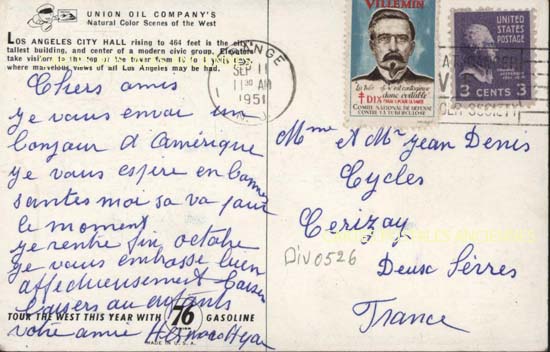 UNION OIL COMPANY'S
Natural Color Scenes of the West
LOS ANGELES CITY HALL rising to 464 feet is the city's
tallest building, and center of a modern civic group. Elevators
take visitors to the top of the tower from
where marvelous views of all Los Angeles may be had.
Chers amis
je vous envoi un
bonjour d'Amérique
je vous espère en bonne
santes moi sa va pour
le moment
je rentre fin octobre
je vous embrasse bien
affectueusement baiser
baisers au enfants
votre amie
TOUR THE WEST THIS YEAR WITH 76 GASOLINE
UNION
MADE IN U.S.A.
ORANGE
SEP 11
11 30 AM
1951
VILLEMIN
contagieuse
donc évitable
DIX
COMITÉ NATIONAL DE DÉFENSE
CONTRE LA TUBERCULOSE
UNITED STATES
POSTAGE
3 CENTS 3
SOCIETY
Mme et Mr Jean Denis
Cycles
Cerizay
CARTES POSTALES ANCIENNES
Div0526
Deux Sèvres
France